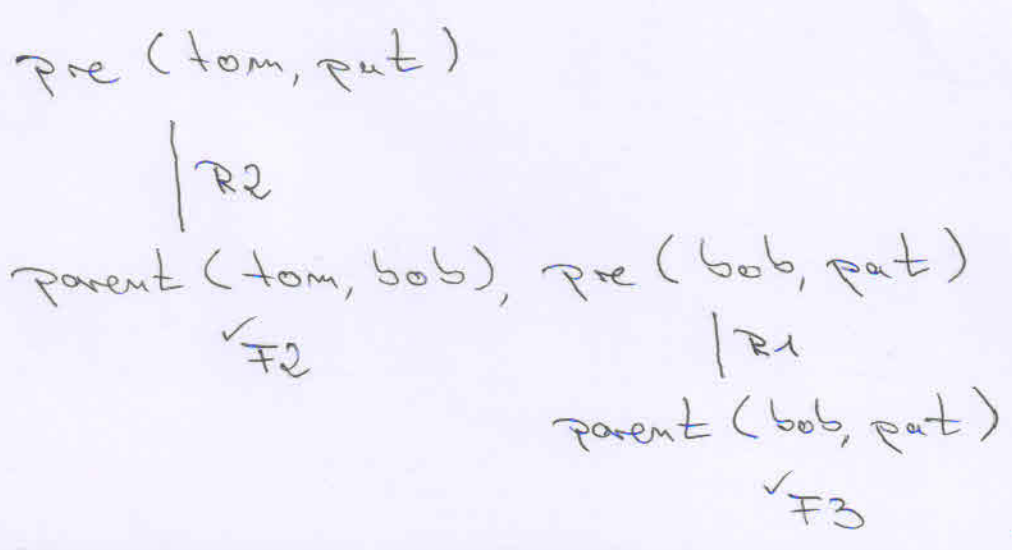 pre (tom, pat)
R2
parent (tom, bob), pre (bob, pat)
✓F2
R1
parent (bob, pat)
✓F3